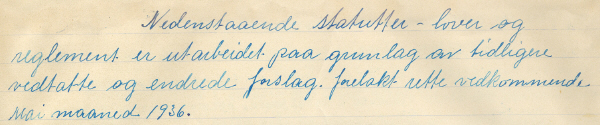 Nedenstaaende statutter - lover og
reglement er utarbeidet paa grunlag av tidligere
vedtatte og endrede forslag. forelakt rette vedkommende
Mai maaned 1936.